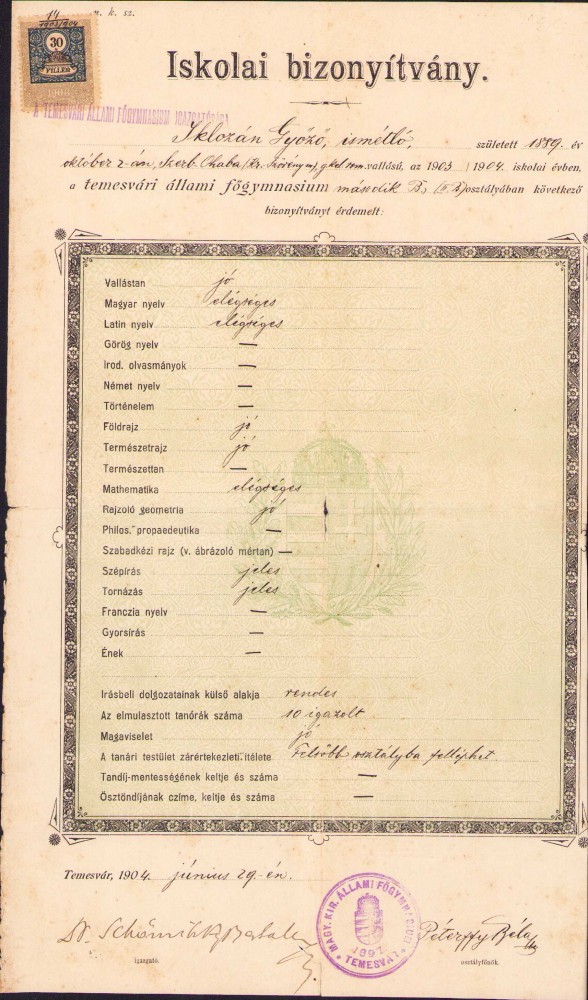 14
1903/904
m. k. sz.
30
FILLÉR
1903
A TEMESVÁRI ÁLLAMI FŐGYMNASIUM IGAZGATÓSÁGA
Iskolai bizonyítvány.
Iklozán Győző, ismétlő, született 1889. év
október 2-án, Szerb Chaba (Kr. Szörény m), g. kel. rom. vallású, az 1903/1904. iskolai évben,
a temesvári állami főgymnasium második B, (II B) osztályában következő
bizonyítványt érdemelt:
Vallástan jó
Magyar nyelv elégséges
Latin nyelv elégséges
Görög nyelv —
Irod. olvasmányok —
Német nyelv —
Történelem —
Földrajz jó
Természetrajz jó
Természettan —
Mathematika elégséges
Rajzoló geometria jó
Philos. propaedeutika —
Szabadkézi rajz (v. ábrázoló mértan) —
Szépírás jeles
Tornázás jeles
Franczia nyelv —
Gyorsírás —
Ének —
Irásbeli dolgozatainak külső alakja rendes
Az elmulasztott tanórák száma 10 igazolt
Magaviselet jó
A tanári testület zárértekezleti ítélete Felsőbb osztályba felléphet.
Tandíj-mentességének keltje és száma —
Ösztöndíjának czíme, keltje és száma —
Temesvár, 1904. június 29-én.
MAGY. KIR. ÁLLAMI FŐGYMNASIUM
1897
TEMESVÁR
Dr.
Péterffy Béla
igazgató.
osztályfőnök.